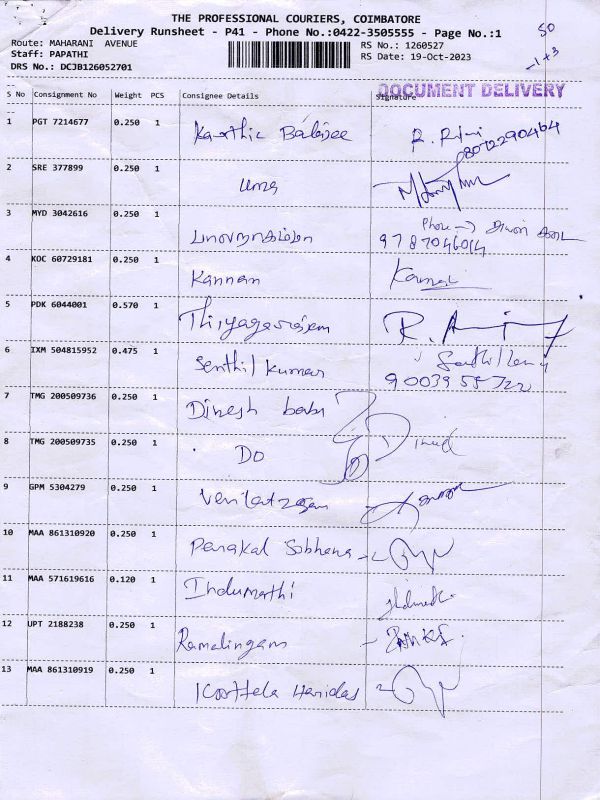 THE PROFESSIONAL COURIERS, COIMBATORE
Delivery Runsheet - P41 - Phone No.:0422-3505555 - Page No.:1
50
Route: MAHARANI AVENUE
RS No.: 1260527
-1+3
Staff: PAPATHI
RS Date: 19-Oct-2023
DRS No.: DCJB126052701
DOCUMENT DELIVERY
S No Consignment No Weight PCS Consignee Details Signature
1 PGT 7214677 0.250 1 Karthic R. Rjni
2 SRE 377899 0.250 1 Uma
3 MYD 3042616 0.250 1
Phone →
9787046014
4 KOC 60729181 0.250 1 Kannan
5 PDK 6044001 0.570 1 Thiyagarajan
6 IXM 504815952 0.475 1 Senthil kumar
7 TMG 200509736 0.250 1 Dinesh babu
8 TMG 200509735 0.250 1 DO
9 GPM 5304279 0.250 1 Venkatesan
10 MAA 861310920 0.250 1 Sobhana
11 MAA 571619616 0.120 1 Indumathi
12 UPT 2188238 0.250 1 Ramalingam
13 MAA 861310919 0.250 1 Haridas